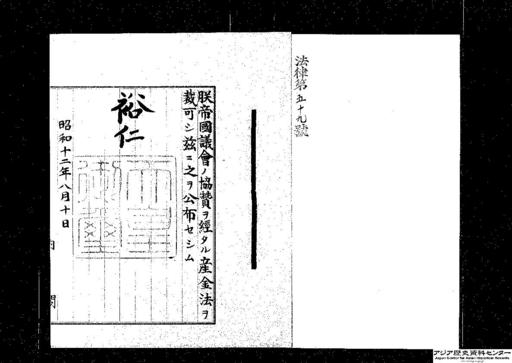 法律第五十九號
朕帝國議會ノ協贊ヲ經タル産金法ヲ
裁可シ茲ニ之ヲ公布セシム
裕仁
昭和十二年八月十日
内
閣
アジア歴史資料センター
Japan Center for Asian Historical Records